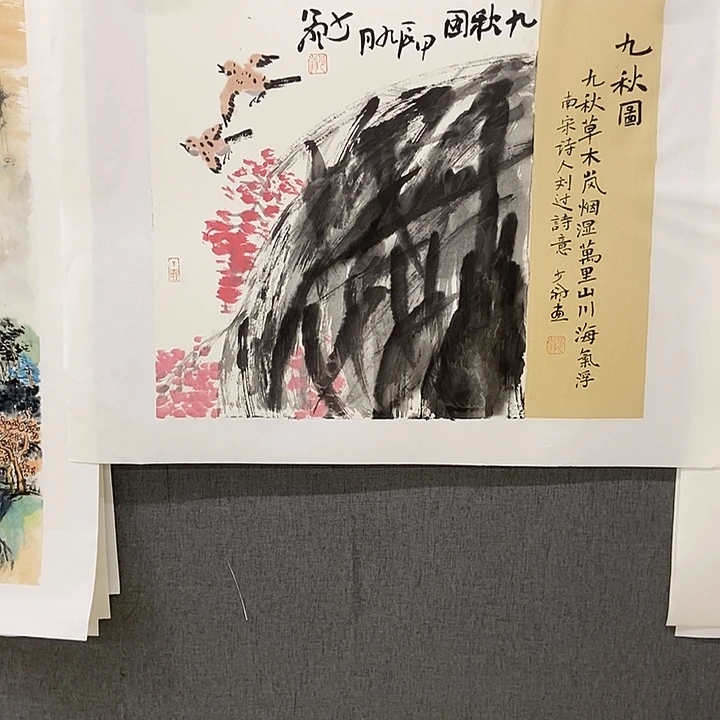 九秋图 甲辰九月 少翁
九秋圖
九秋草木岚烟湿萬里山川海氣浮
南宋诗人刘过詩意 少翁画